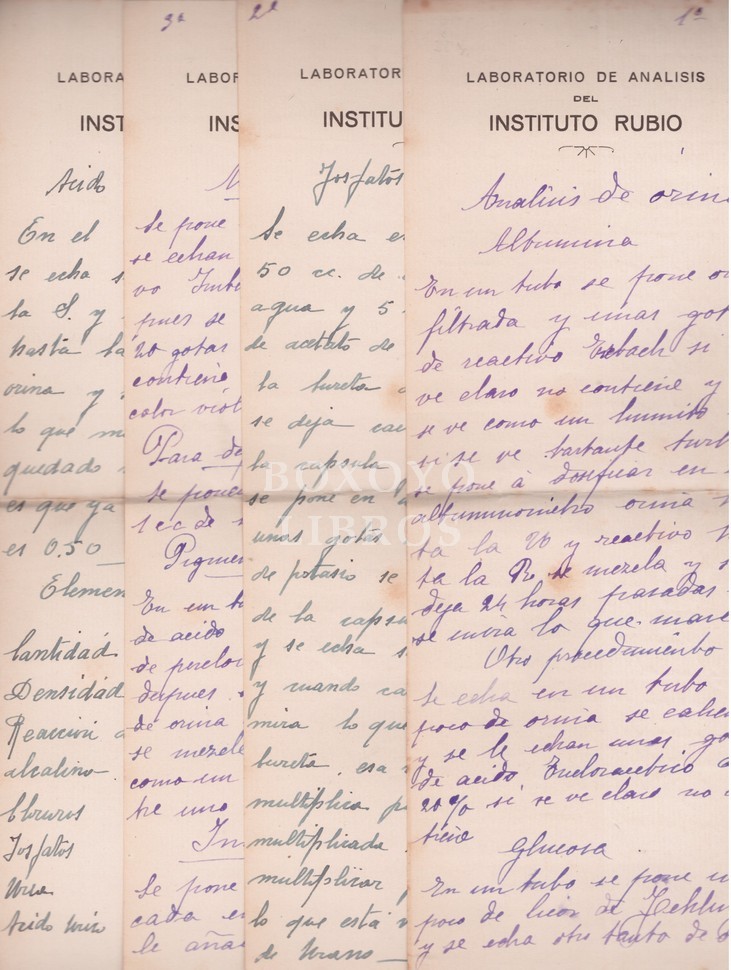 LABORA
INST
Acido
En el
se echa s
la S. y
hasta la
orina y
lo que m
quedado
es que ya
es 0.50
Elemen
Cantidad
Densidad
Reaccion a
alcalino.
Cloruros
Fosfatos
Urea
Acido Urico
3ª
LABOR
INS
Se pone
se echan
vo
pues se
20 gotas
contiene
color viol
Para de
se pone
1 cc de
Pigmen
En un tu
de acido
de perclor
despues
de orina
se mezcle
como un
tre uno
In
Se pone
cada en
le aña
2ª
LABORATOR
INSTITU
Fosfatos
Se echa e
50 cc. de
agua y 5
de acetato de
la bureta
se deja ca
la capsula
se pone en
unas gotas
de potasio se
de la capsu
y se echa
y cuando ca
mira lo que
bureta, esa
multiplica p
multiplicada
multiplicar
lo que está
de Urano
1ª
LABORATORIO DE ANALISIS
DEL
INSTITUTO RUBIO
Analisis de orin
Albumina
En un tubo se pone o
filtrada y unas got
de reactivo Esbach si
ve claro no contiene y
se ve como un
si se ve bastante turb
se pone á dosificar en
albuminometro orina
ta la U y reactivo
ta la R. se mezcla y
deja 24 horas pasadas
se mira lo que marc
Otro procedimiento
Se echa en un tubo
poco de orina se calie
y se le echan unas go
de acido Tricloracetico
20% si se ve claro no
tiene
Glucosa.
En un tubo se pone u
poco de licor de Fehli
y se echa otro tanto de
BOXOYO
LIBROS